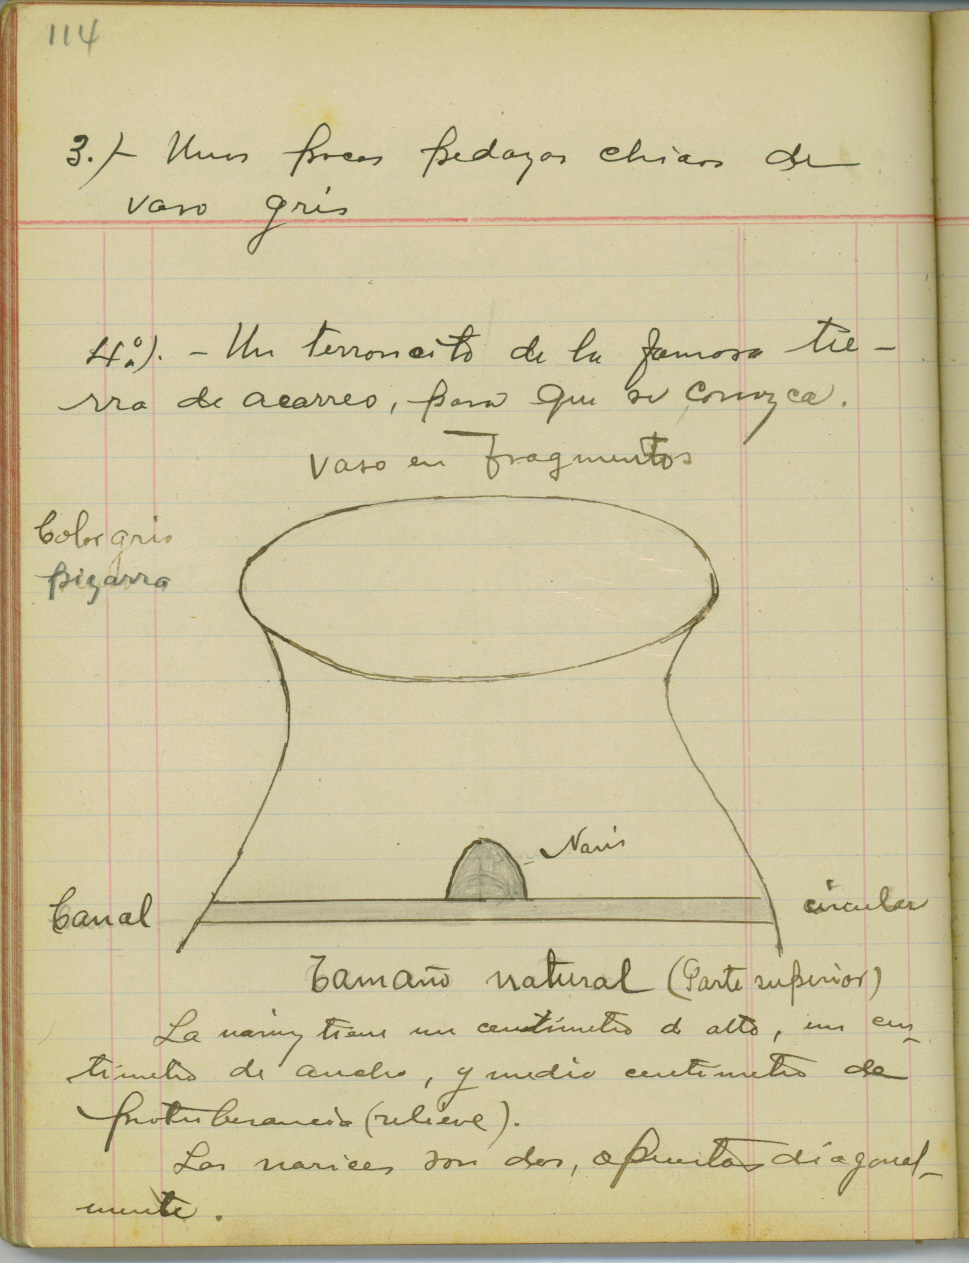 114
3.)- Unos pocos pedazos chicos de
vaso gris
4º). - Un terroncito de la famosa tie-
rra de acarreo, para que se conozca.
Vaso en Fragmentos
Color gris
pizarra
Naris
Canal circular
Tamaño natural (Parte superior)
La nariz tiene un centímetro de alto, un cen-
tímetro de ancho, y medio centímetro de
protuberancia (relieve).
Las narices son dos, opuestas diagonal-
mente.